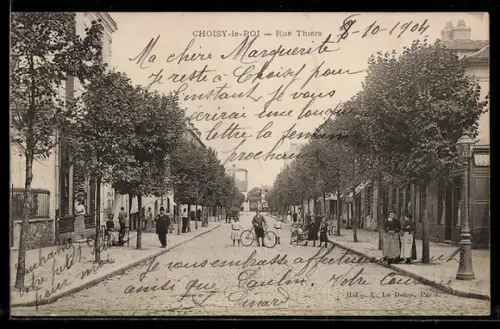 CHOISY-le-ROI — Rue Thiers
8-10-1904
Ma chère Marguerite
Je reste à Choisy pour
l'instant, je vous
écrirai une longue
lettre la semaine
prochaine
Je vous embrasse affectueusement
ainsi que Paulin, Votre cousine
Souhaite
petit
pour moi
Hélio. E. Le Deley, Paris.